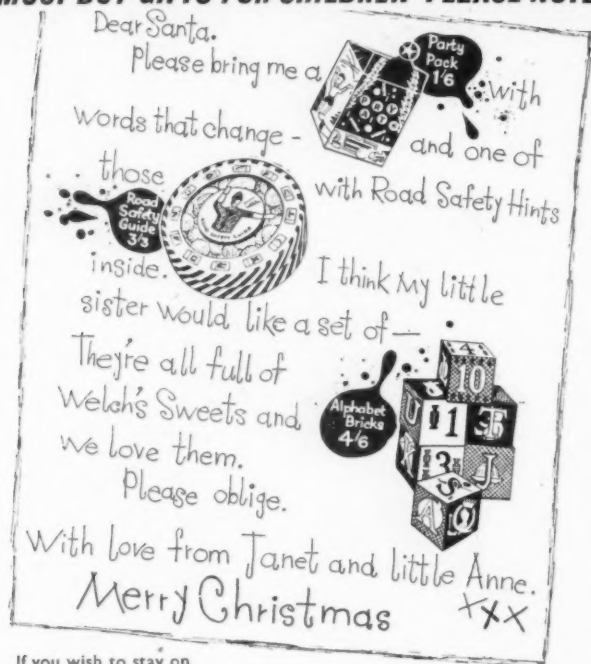 MUST BUY GIFTS FOR CHILDREN PLEASE NOTE
Dear Santa.
Please bring me a
Party
Pack
1'6
with
words that change -
and one of
those
Road
Safety
Guide
3/3
with Road Safety Hints
inside.
I think my little
sister would like a set of —
They're all full of
Welch's Sweets and
we love them.
Please oblige.
Alphabet
Bricks
4/6
4
10
U
11
K
3
J
S
A
With love from Janet and little Anne.
Merry Christmas
XXX
If you wish to stay on